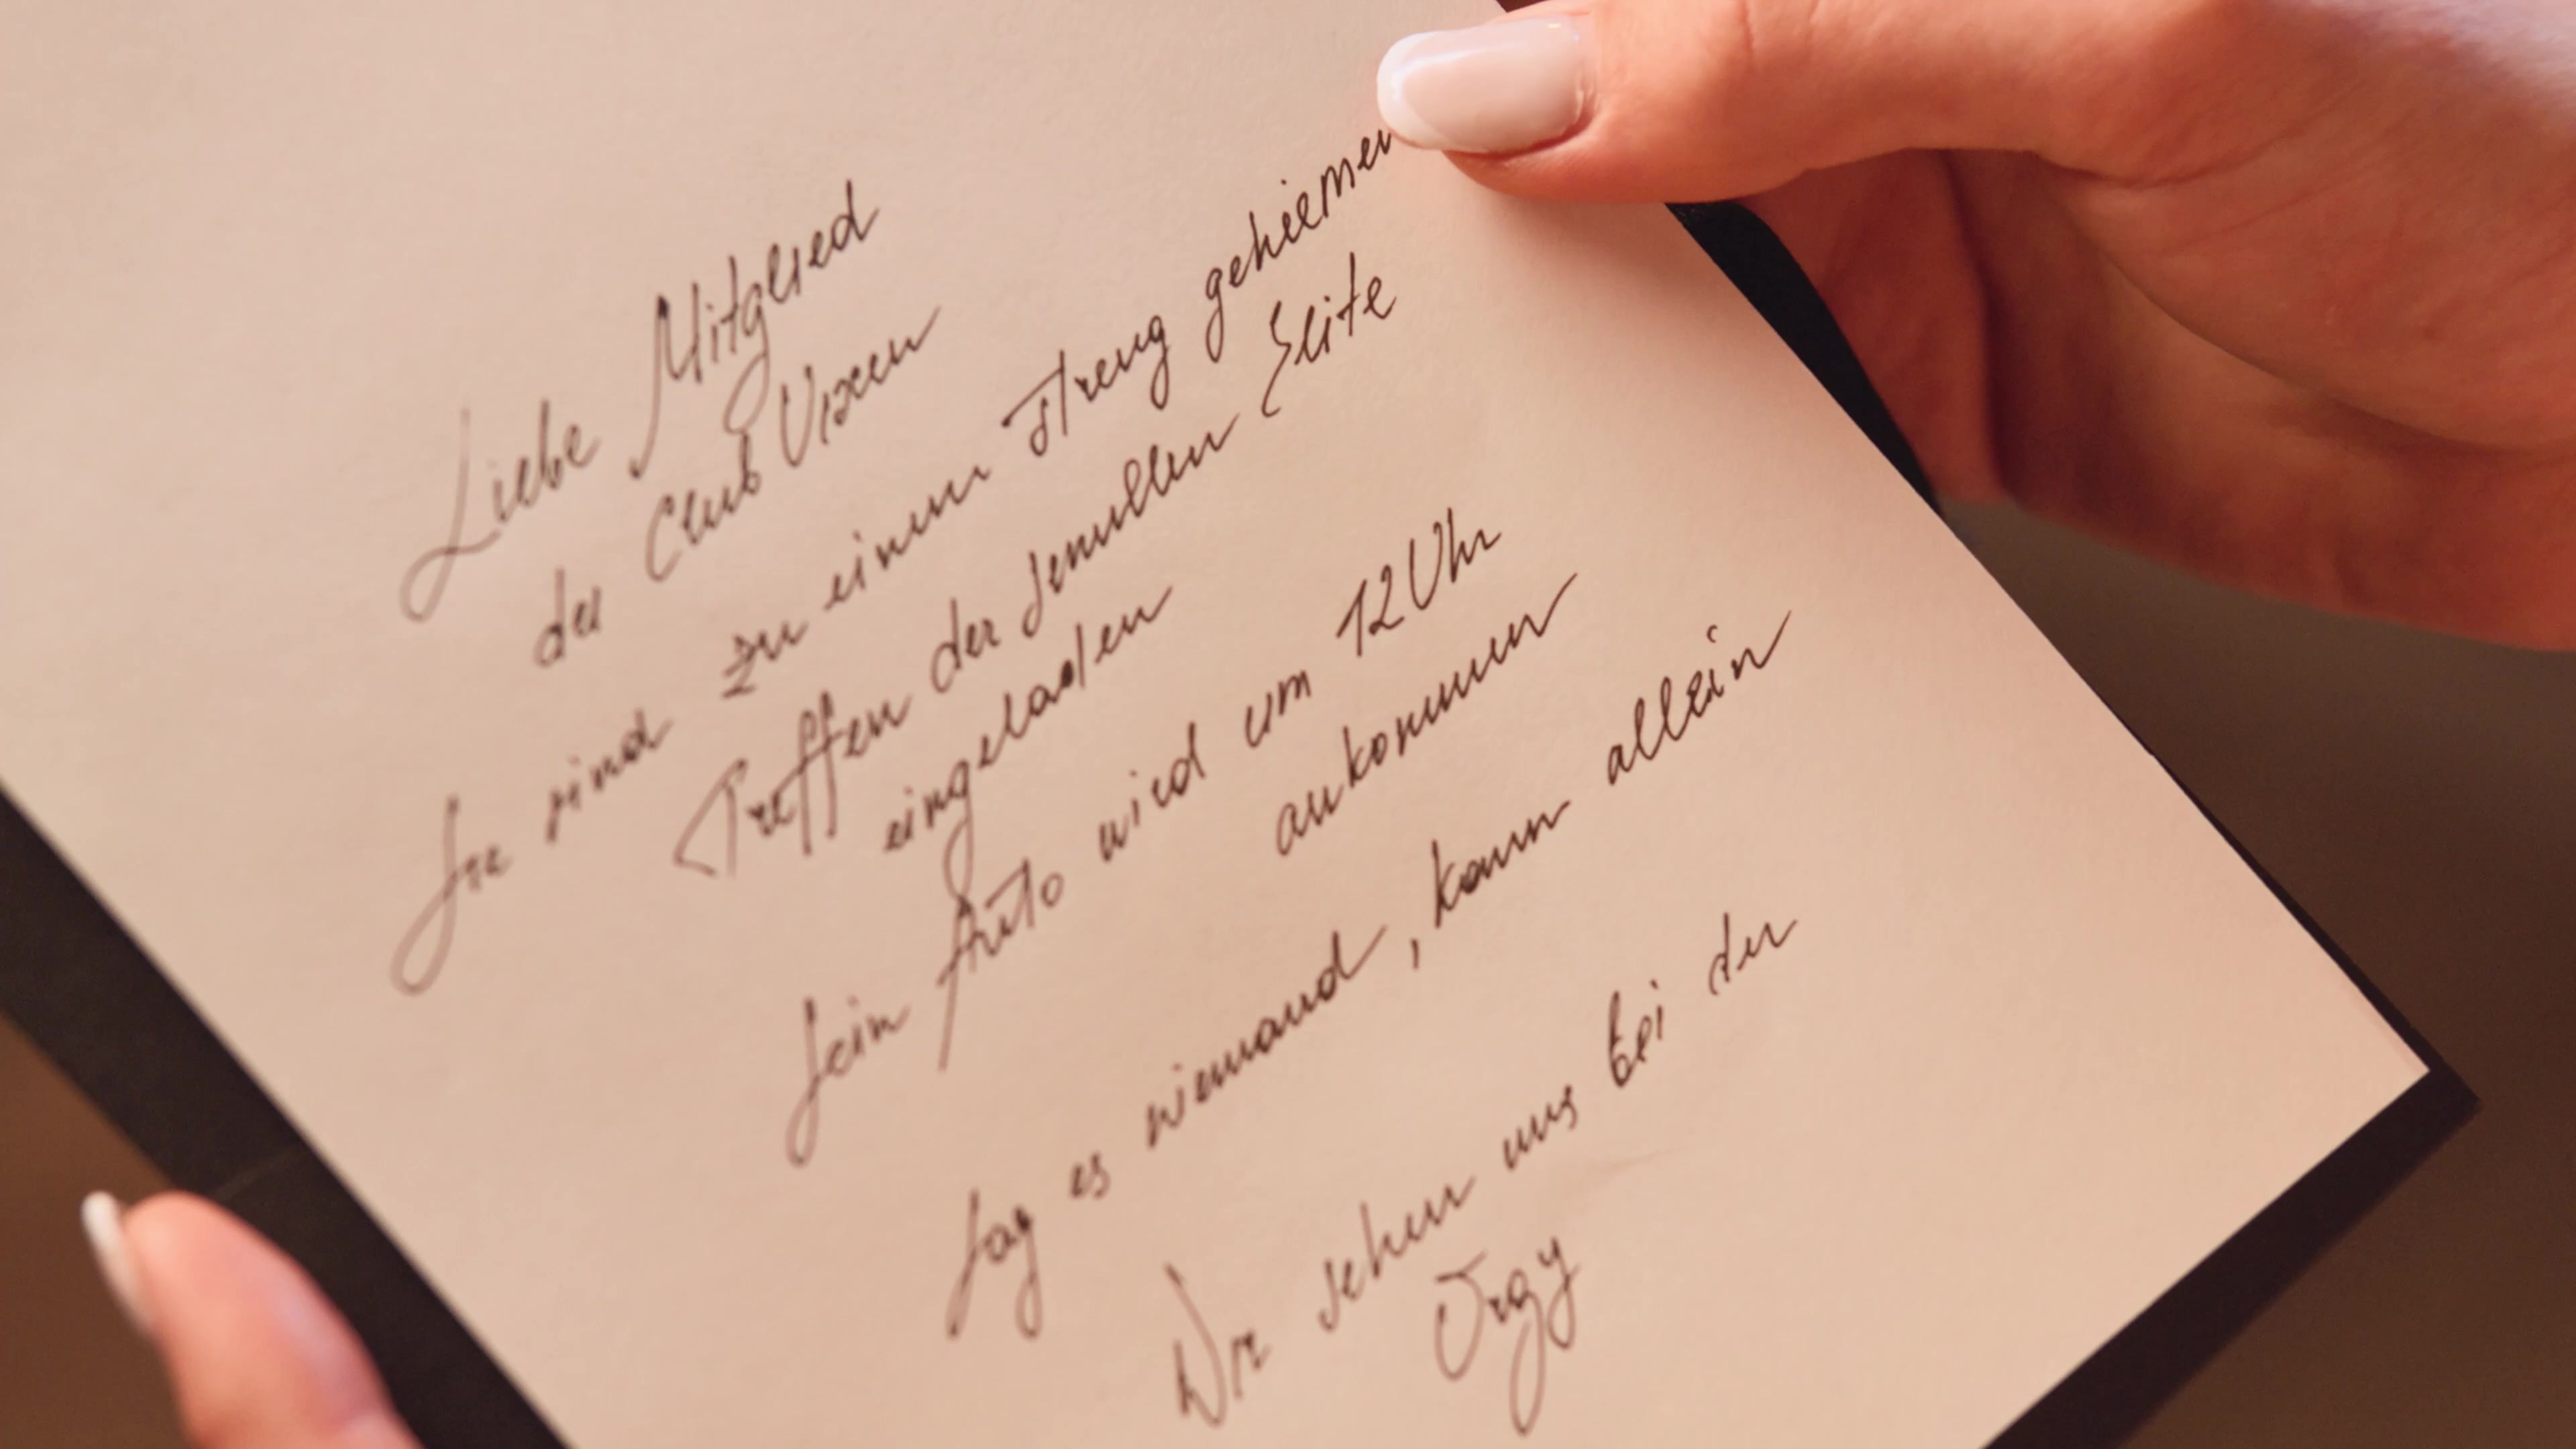 Liebe Mitglied
der Club Vixen
Sie sind zu einem streng gehiemen
Treffen der sexuellen Elite
eingeladen
Sein Auto wird um 12 Uhr
ankommen
Sag es niemand, komm allein
Wir sehen uns bei der
Orgy